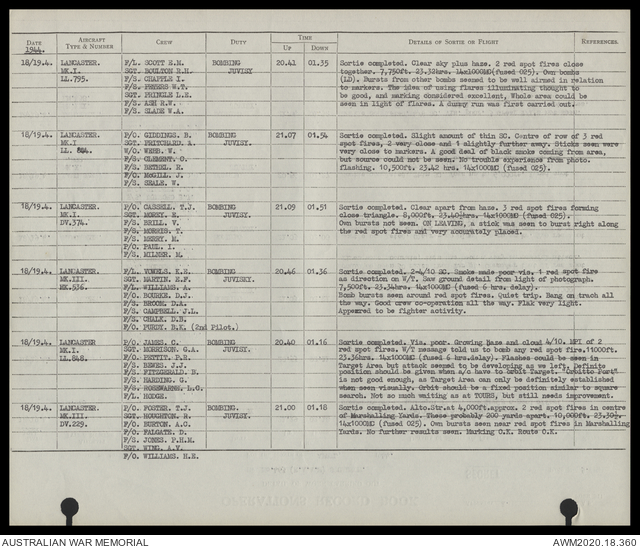 DATE 1944. AIRCRAFT TYPE & NUMBER CREW DUTY TIME UP DOWN DETAILS OF SORTIE OR FLIGHT REFERENCES.
18/19.4. LANCASTER. F/L. SCOTT E.M. BOMBING 20.41 01.35 Sortie completed. Clear sky plus haze. 2 red spot fires close
MK.I. SGT. BOULTON R.H. JUVISY together. 7,750ft. 23.32hrs. 14x1000MC(fused 025). Own bombs
LL.795. F/S. CHAPPLE I. (LD). Bursts from other bombs seemed to be well airmed in relation
F/S. PETERS W.T. to markers. The idea of using flares illuminating thought to
SGT. PRINGLE L.H. be good, and marking considered excellent, Whole area could be
F/S. ASH R.W. seen in light of flares. A dummy run was first carried out.
F/S. SLADE W.A.
18/19.4. LANCASTER. P/O. GIDDINGS. B. BOMBING 21.07 01.54 Sortie completed. Slight amount of thin SC. Centre of row of 3 red
MK.I SGT. PRITCHARD. A. JUVISY. spot fires, 2 very close and 1 slightly further away. Sticks seen were
LL. W/O. WEBB. W. very close to markers. A good deal of black smoke coming from area,
F/S. CLEMENT. C. but source could not be seen. No trouble experience from photo.
F/S. BETHEL. R. flashing. 10,500ft. 23.42 hrs. 14x1000MC (fused 025).
F/O. McGILL. J.
F/S. SEALE. W.
18/19.4. LANCASTER. F/O. CASSELL. T.J. BOMBING 21.09 01.51 Sortie completed. Clear apart from haze. 3 red spot fires forming
MK.I SGT. MOREY. E. JUVISY. close triangle. 8,000ft. 23.40½hrs. 14x1000MC (fused 025).
DV.374. F/S. BRILL. V. Own bursts not seen. ON LEAVING, a stick was seen to burst right along
F/S. MORRIS. T. the red spot fires and very accurately placed.
F/S. MERRY. M.
F/O. PAUL. I.
F/S. MILNER. M.
18/19.4. LANCASTER. F/L. VOWELS. R.E. BOMBING 20.46 01.36 Sortie completed. 2-4/10 SC. Smoke made poor vis. 1 red spot fire
MK.III. SGT. MARTIN. E.F. JUVISKY. as direction on W/T. Saw ground detail from light of photograph.
F/L. WILLIAMS. A. 7,500ft. 23.34hrs. 14x1000MC (fused 6 hrs. delay).
F/O. BOURKE. D.J. Bomb bursts seen around red spot fires. Quiet trip. Bang on track all
F/S. BROOM. D.A. the way. Good crew co-operation all the way. Flak very light.
F/S. CAMPBELL. J.L. Appeared to be fighter activity.
F/S. CHALK. D.B.
F/O. PURDY. B.K. (2nd Pilot.)
18/19.4. LANCASTER. P/O. JAMES. C. BOMBING 20.40 01.16 Sortie completed. Vis. poor. Growing Haze and cloud 4/10. MPI of 2
MK.I. SGT. MORRISON. G.A. JUVISY. red spot fires. W/T message told us to bomb any red spot fire.11000ft.
LL.848. F/O. PETTIT. P.E. 23.36hrs. 14x1000MC (fused 6 hrs.delay). Flashes could be seen in
F/S. REWES. J.J. Target Area but attack seemed to be developing as we left. Definite
F/S. FITZGERALD. B. position should be given when a/c have to Orbit Target. "Orbitto Port"
F/S. HARDING. G. is not good enough, as Target Area can only be definitely established
F/S. ROSEWARNE. L.C. when seen visually. Orbit should be a fixed position similar to square
F/L. HODGE. search. Not so much waiting as at TOURS, but still needs improvement.
18/19.4. LANCASTER. P/O. FOSTER. T.J. BOMBING. 21.00 01.18 Sortie completed. Alto.Strat 4,000ft.approx. 2 red spot fires in centre
MK.III. SGT. HOUGHTON. R. JUVISY. of Marshalling Yards. These probably 200 yards apart. 10,000ft. 23.30½-
DV.229. F/O. BURTON. A.C. 14x1000MC (fused 025). Own bursts seen near red spot fires in Marshalling
F/O. FALGATE. D. Yards. No further results seen. Marking O.K. Route O.K.
F/S. JONES. P.H.M.
SGT. WING. A.V.
F/O. WILLIAMS. H.E.
AUSTRALIAN WAR MEMORIAL AWM2020.18.360